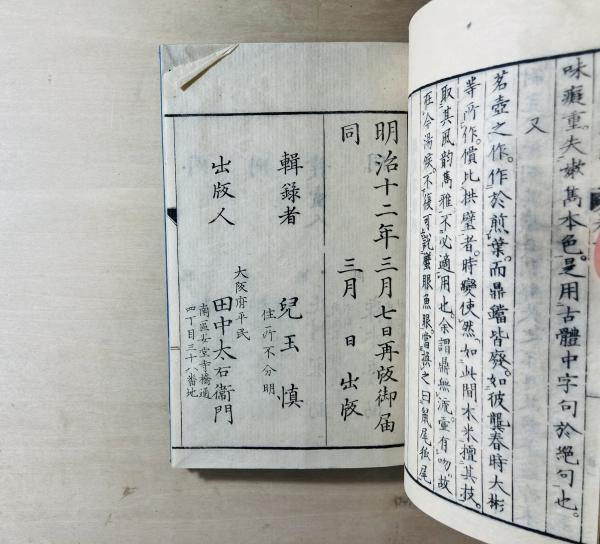 味癡重。失嫩篶本色。是用古體中字句於絕句也。
又
茗壺之作。作於煎葉。而鼎鐺皆廢。如彼龔春時大彬
等所作。價比拱璧者。時變使然。如此間木米擅其技。
取其風韵篶雅。不必適用也。余謂鼎無流。壷有吻。故
在今湯候。不復可說蟹眼魚眼。當換之曰鼠尾狐尾
明治十二年三月七日再版御届
同 三月 日 出版
輯録者 兒玉慎
住所不分明
出版人 大阪府平民
田中太右衛門
南區安堂寺橋通
四丁目三十八番地